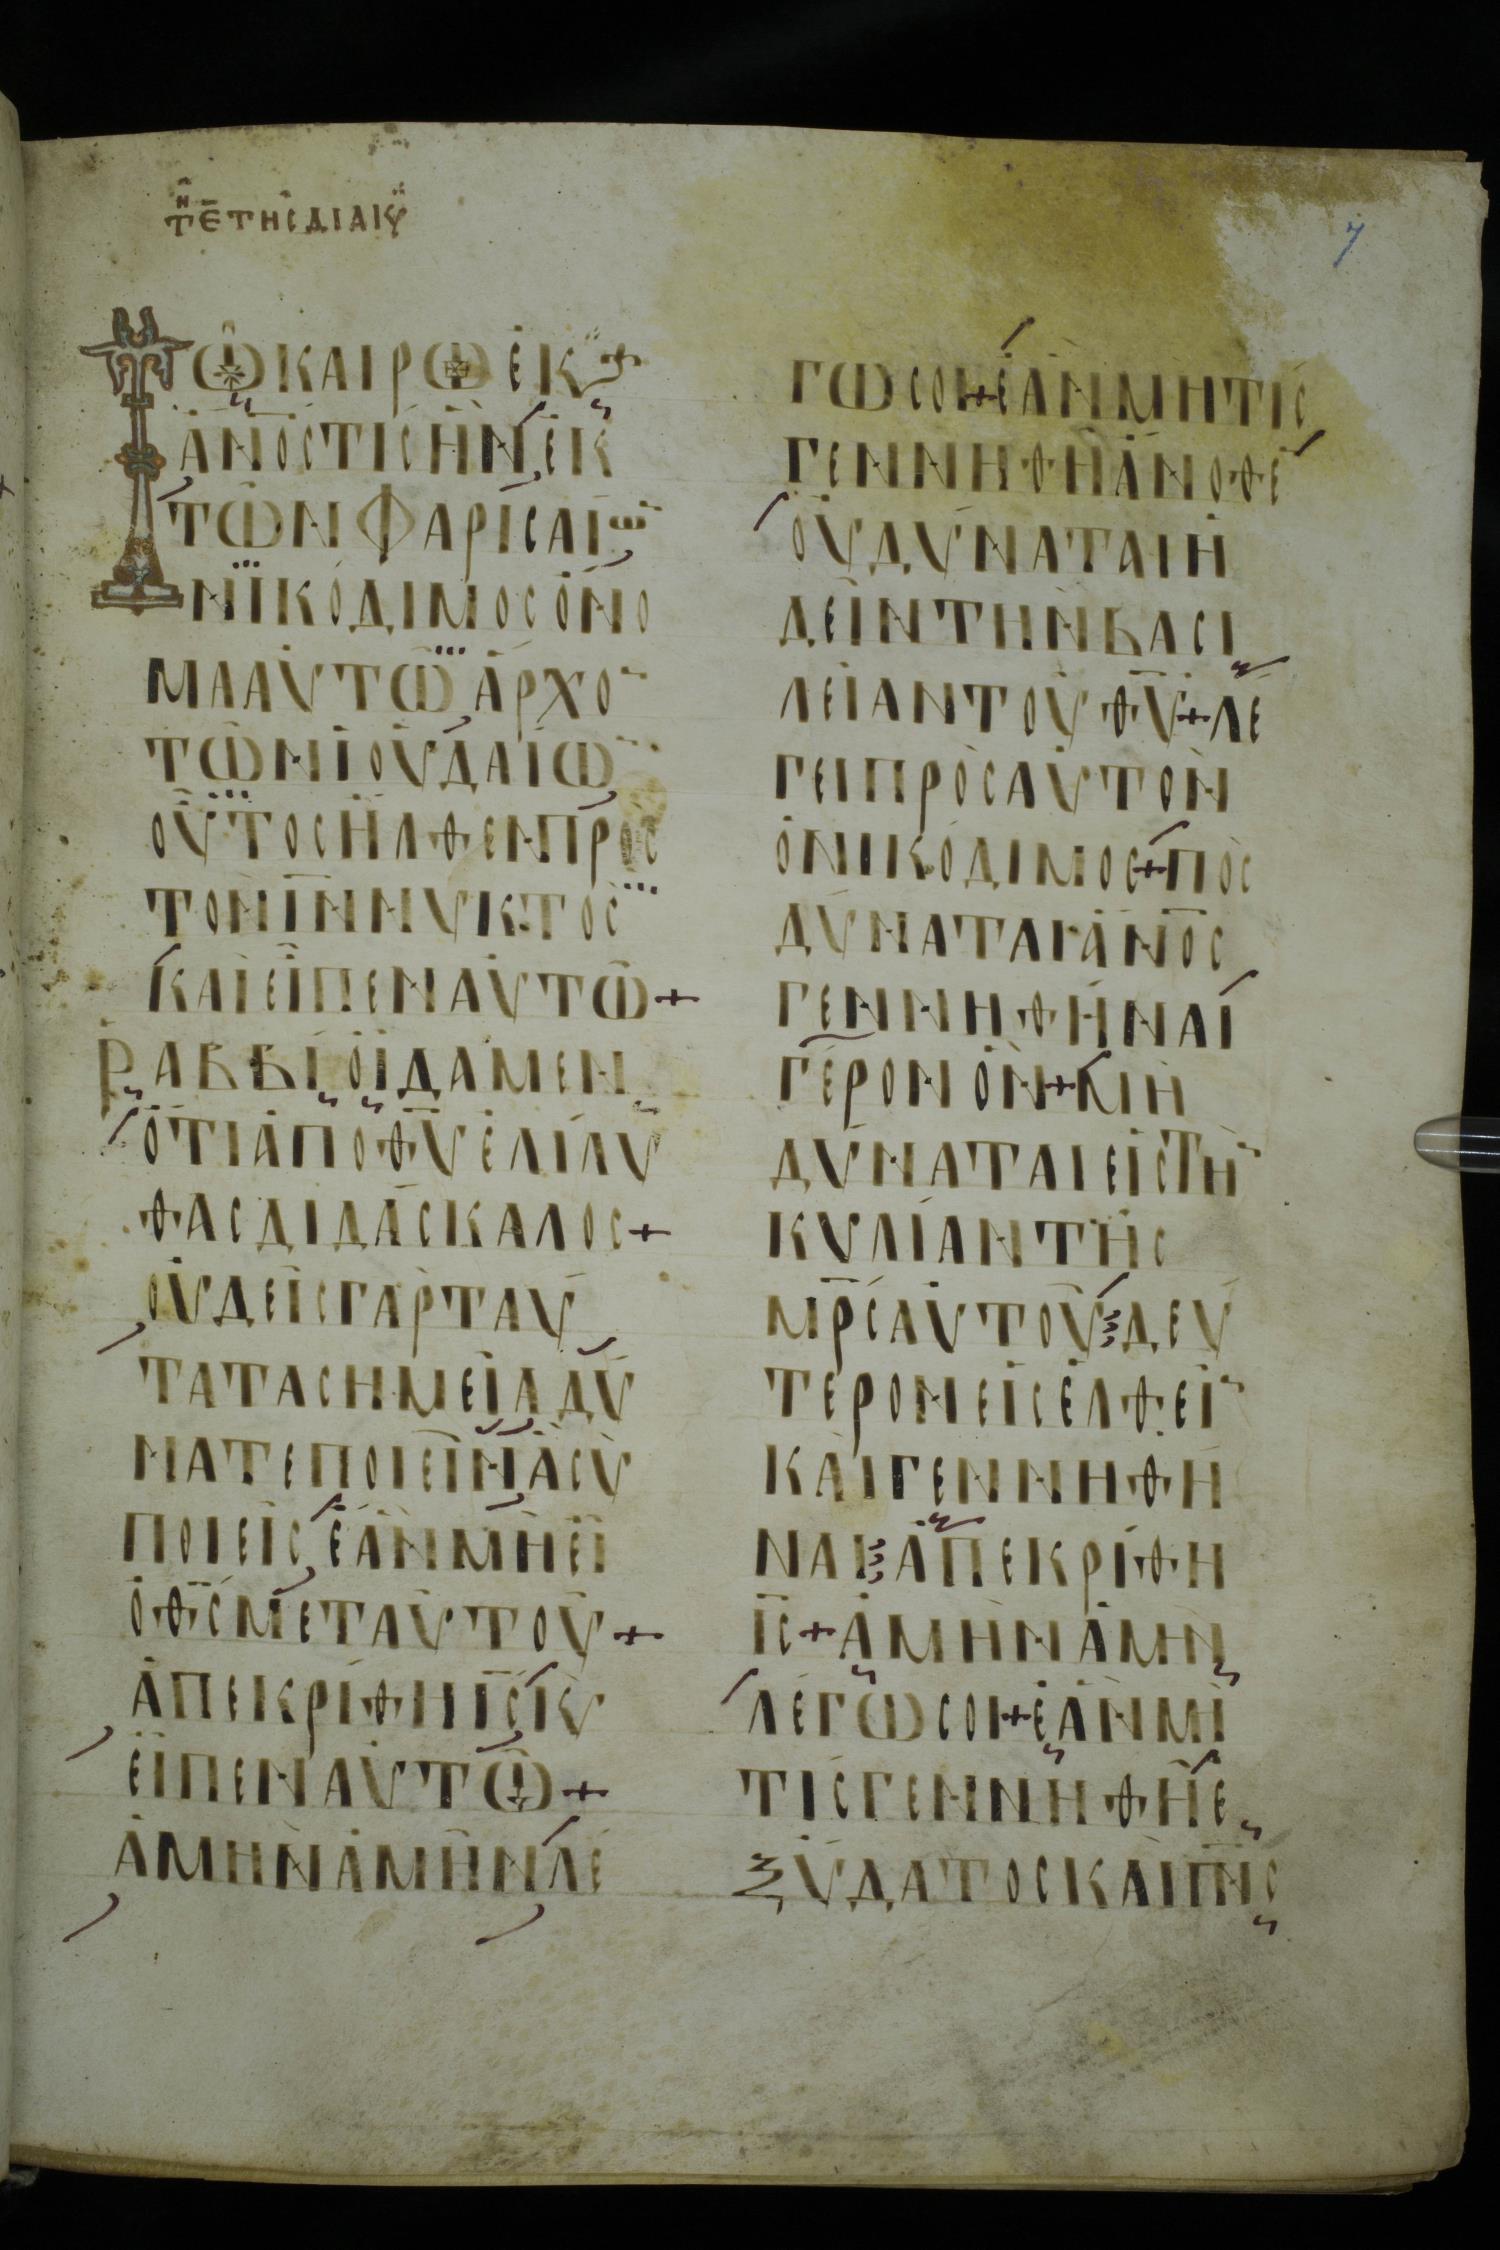 ΤΕ̅ΤΗϹΔΙΑΙΥ
7
ΤΩΚΑΙΡΩΕΚ
ΑΝ̅ΟϹΤΙϹΗΝΕΚ
ΤΩΝΦΑΡΙϹΑΙΩ̅
ΝΙΚΟΔΙΜΟϹΟΝΟ
ΜΑΑΥΤΩΑΡΧΟ̅
ΤΩΝΙΟΥΔΑΙΩ̅
ΟΥΤΟϹΗΛΘΕΝΠΡΟϹ
ΤΟΝΙ̅Ν̅ΝΥΚΤΟϹ
ΚΑΙΕΙΠΕΝΑΥΤΩ+
ΡΑΒΒΙΟΙΔΑΜΕΝ
ΟΤΙΑΠΟΘ̅Υ̅ΕΛΙΛΥ
ΘΑϹΔΙΔΑϹΚΑΛΟϹ+
ΟΥΔΕΙϹΓΑΡΤΑΥ
ΤΑΤΑϹΗΜΕΙΑΔΥ
ΝΑΤΕΠΟΙΕΙΝΑϹΥ
ΠΟΙΕΙϹΕΑΝΜΗΕΙ
ΟΘ̅Ϲ̅ΜΕΤΑΥΤΟΥ+
ΑΠΕΚΡΙΘΗΙ̅Ϲ̅Κ
ΕΙΠΕΝΑΥΤΩ+
ΑΜΗΝΑΜΗΝΛΕ
ΓΩϹΟΙ+ΕΑΝΜΗΤΙϹ
ΓΕΝΝΗΘΗΑΝΟΘΕ
ΟΥΔΥΝΑΤΑΙΗ
ΔΕΙΝΤΗΝΒΑϹΙ
ΛΕΙΑΝΤΟΥΘ̅Υ̅+ΛΕ
ΓΕΙΠΡΟϹΑΥΤΟΝ
ΟΝΙΚΟΔΙΜΟϹ+ΠΟϹ
ΔΥΝΑΤΑΙΑΝ̅Ο̅Ϲ
ΓΕΝΝΗΘΗΝΑΙ
ΓΕΡΟΝΟΝ+ΜΗ
ΔΥΝΑΤΑΙΕΙϹΤΗ̅
ΚΥΛΙΑΝΤΗϹ
Μ̅Ρ̅ϹΑΥΤΟΥ⁝ΔΕΥ
ΤΕΡΟΝΕΙϹΕΛΘΕΙ̅
ΚΑΙΓΕΝΝΗΘΗ
ΝΑΙ⁝ΑΠΕΚΡΙΘΗ
Ι̅Ϲ+ΑΜΗΝΑΜΗΝ
ΛΕΓΩϹΟΙ+ΕΑΝΜΙ
ΤΙϹΓΕΝΝΗΘΗΕ
ΞΥΔΑΤΟϹΚΑΙΠ̅Ν̅Ϲ